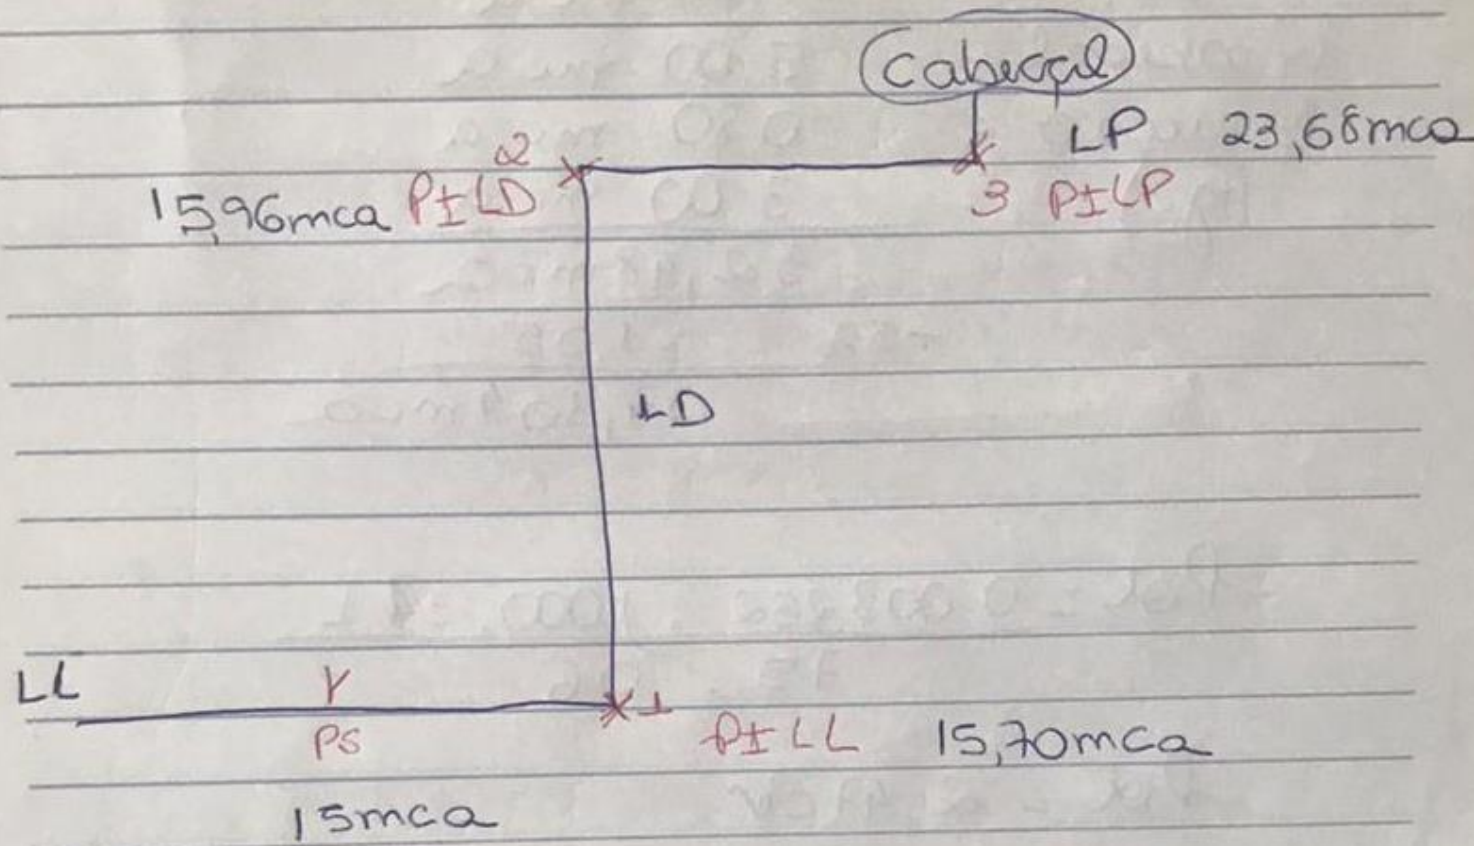 Cabeçal
LP 23,68mca
2
3 PILP
15,96mca PILD
LD
LL Y
PS
1 PILL 15,70mca
15mca